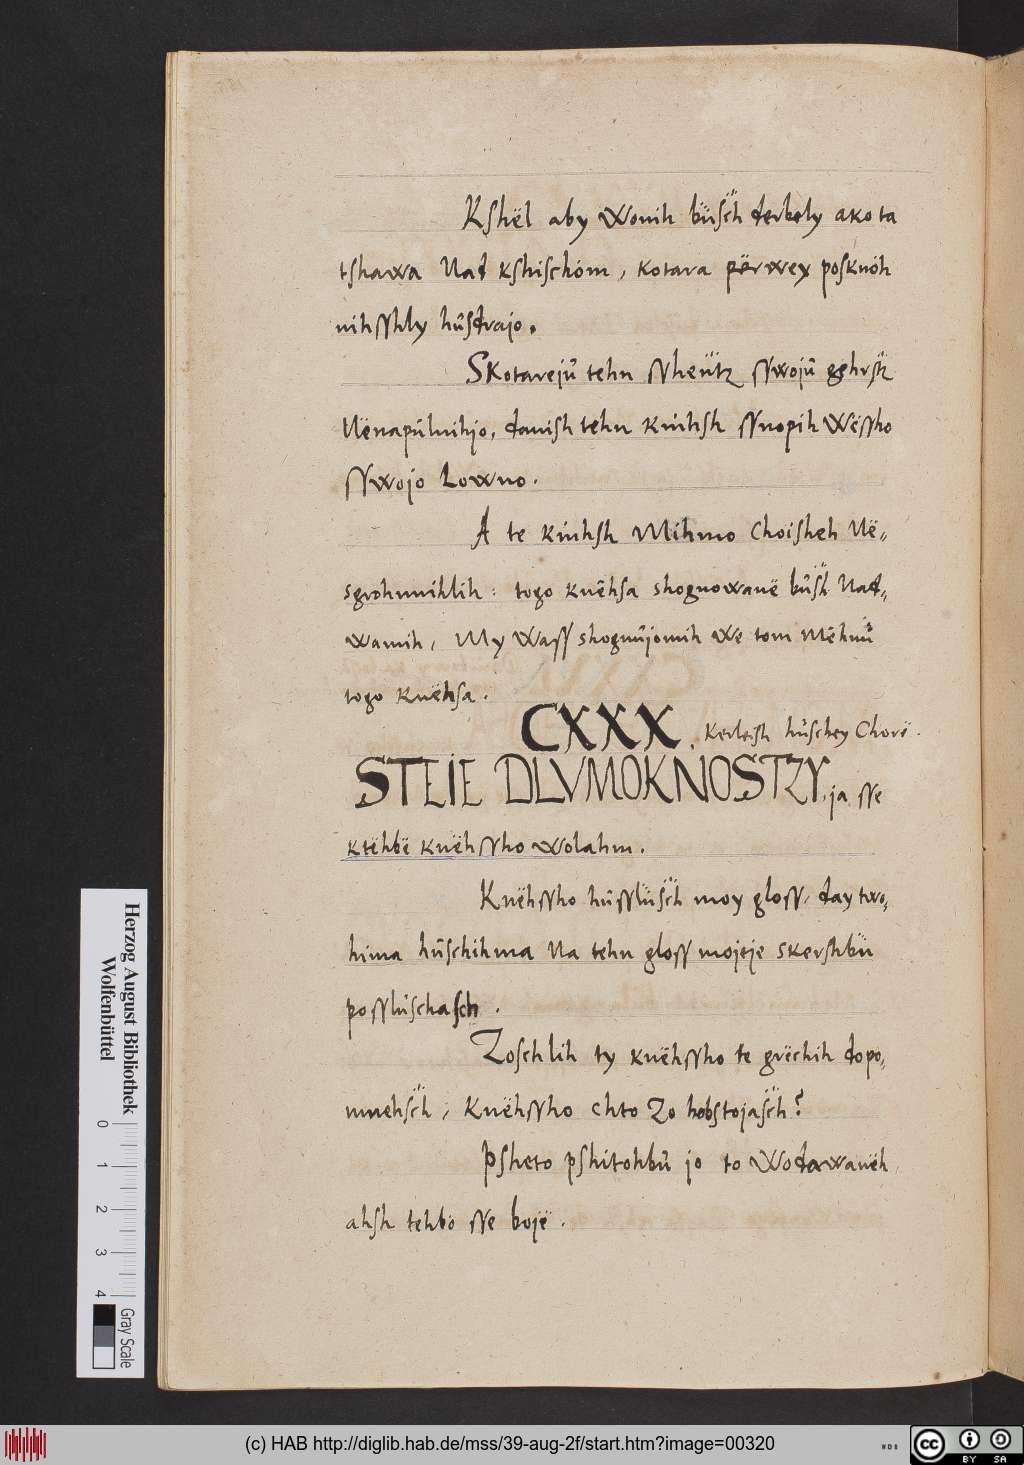 Kshël aby Wonih büsch derbely ako ta
tshawa Nad kshischóm, kotara përwey posknóh
nihsshly hüsdrajo.
Skotarejŭ tehn ssheütz sswojŭ gehrsk
Nënapŭlnihjo, danish tehn knihsh ssnopih Wëssho
sswojo Lowno.
A te knihsh Mihmo Choisheh Në=
sgrohnnihlih: togo knëhsa shognowanë büsk Nad=
wamih, My Wass shognŭjomih We tom Mëhnŭ
togo knëhsa.
CXXX. Kerleish hŭschey Chorë.
STEIE DLVMOKNOSTZY, ja sse
ktëhbë knëhssho wolahm.
Knëhssho hüsslüsch moy gloss, day two=
hima hŭschihma Na tehn gloss mojeje skershbü
posslŭschasch.
Zoschlih ty knëhssho te grëchih dopo=
mnehsch, Knëhssho chto Zo hobstojasch?
Psheto pshitohbŭ jo to Wodawanëh,
ahsh tehbo sse bojë.
Herzog August Bibliothek
Wolfenbüttel
0 1 2 3 4
Gray Scale
(c) HAB http://diglib.hab.de/mss/39-aug-2f/start.htm?image=00320
WDB
cc BY SA